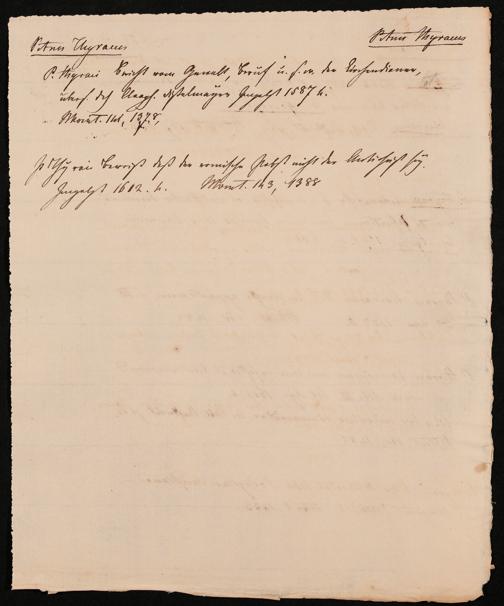 Petrus Thyraeus
Petrus Thyraeus
P. Thyraei Bericht vom Gewalt, Beruf u. s. w. der Kirchendiener,
übers. deß Casp. Distelmayer Ingolst 1587 4.
Mont. 141, 1378,
P. Thyraei Beweiß daß der römische Pabst nicht der Antichrist sey.
Ingolst 1602. 4. Mont. 143, 1388